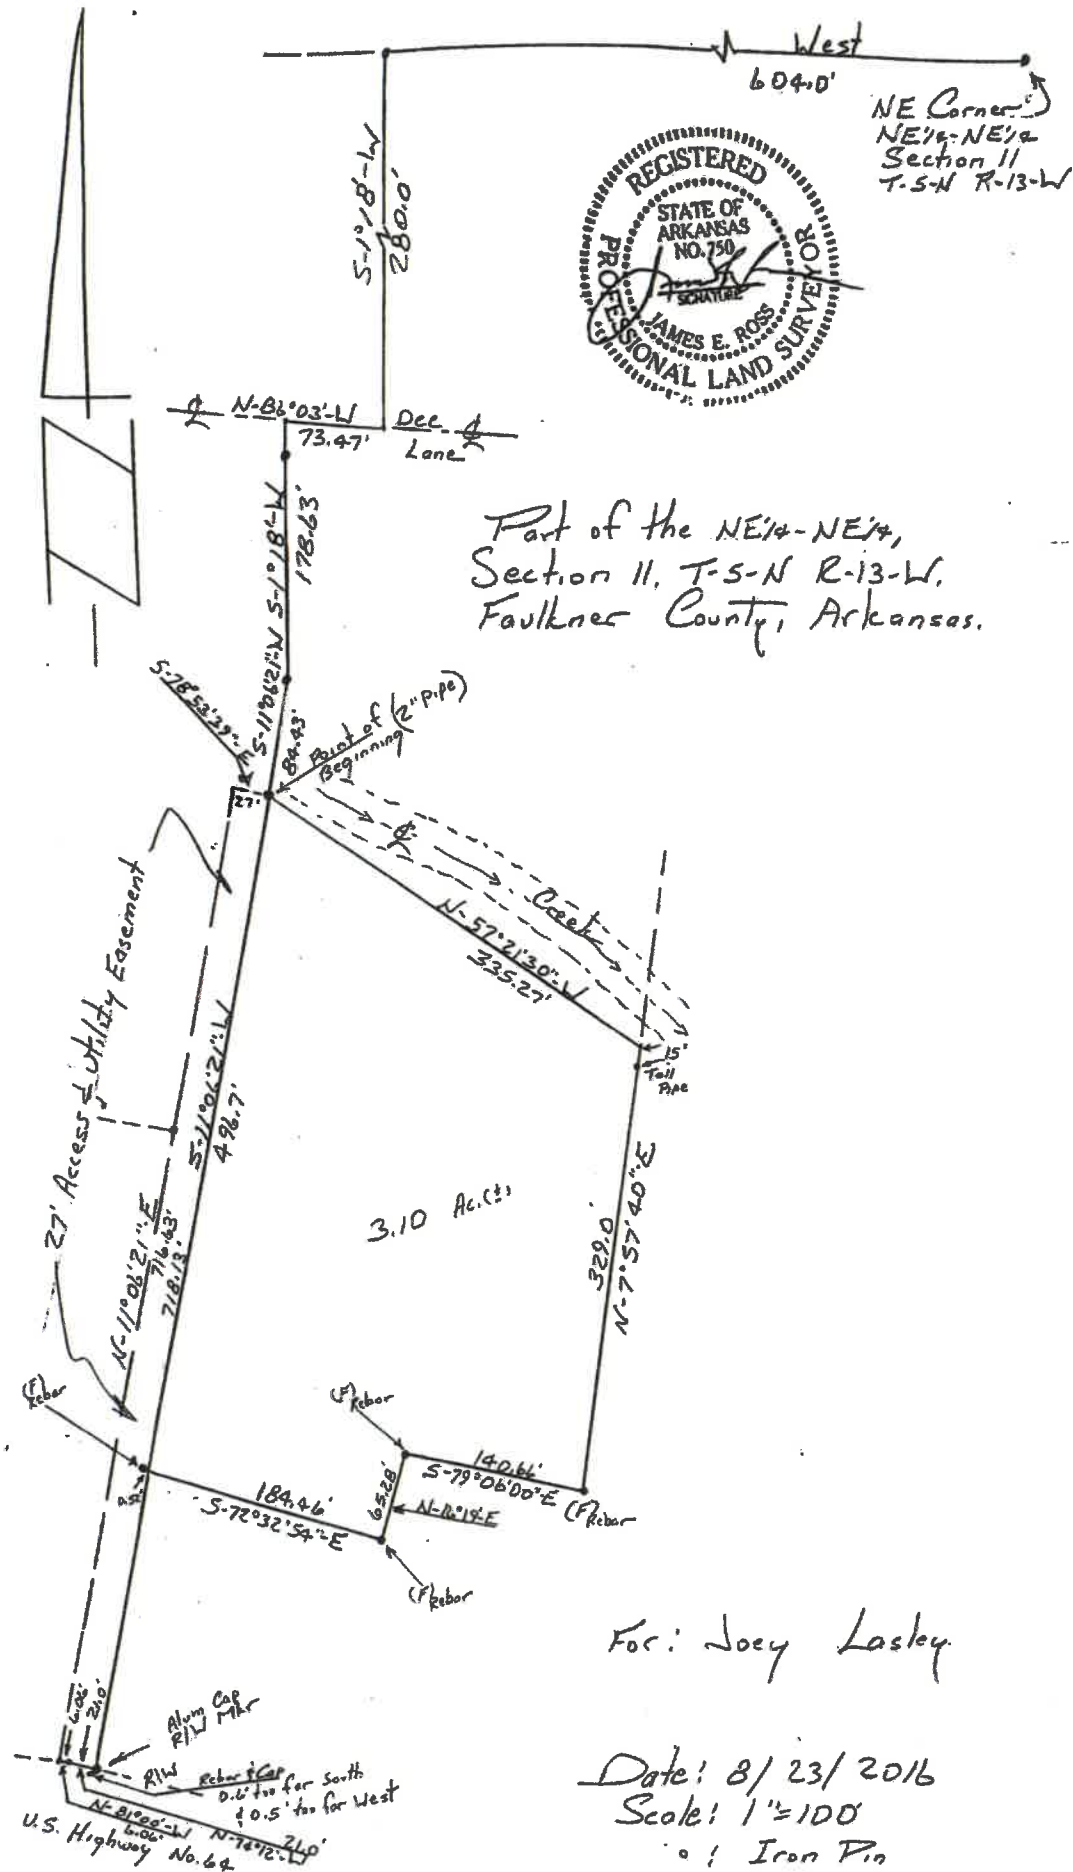 West
604.0'
NE Corner
NE¼-NE¼
Section 11
T-5-N R-13-W
REGISTERED
PROFESSIONAL LAND SURVEYOR
STATE OF
ARKANSAS
NO. 750
SIGNATURE
JAMES E. ROSS
S-1°18'-W
280.0'
℄ N-86°03'-W
73.47'
Dee ℄
Lane
S-1°18'-W
178.63'
Part of the NE¼-NE¼,
Section 11, T-5-N R-13-W,
Faulkner County, Arkansas.
S-11°06'21"-W
84.43'
S-78°53'39"-E
27'
Point of (2" pipe)
Beginning
℄
Creek
N-57°21'30"-W
335.27'
15'
Tall
Pipe
27' Access & Utility Easement
S-11°06'21"-W
496.7'
N-11°06'21"-E
716.63'
718.13'
3.10 Ac.(±)
329.0'
N-7°57'40"-E
(F) Rebar
(F) Rebar
140.66'
S-79°06'00"-E
(F) Rebar
184.46'
S-72°32'54"-E
65.28'
(F) Rebar
6.06'
21.0'
Alum Cap
R/W Mkr
R/W
Rebar & Cap
0.6' too far South
& 0.5' too far West
N-81°00'-W
6.06'
N-74°12'-W
21.0'
U.S. Highway No. 64
For: Joey Lasley
Date: 8/23/2016
Scale: 1"=100'
: Iron Pin